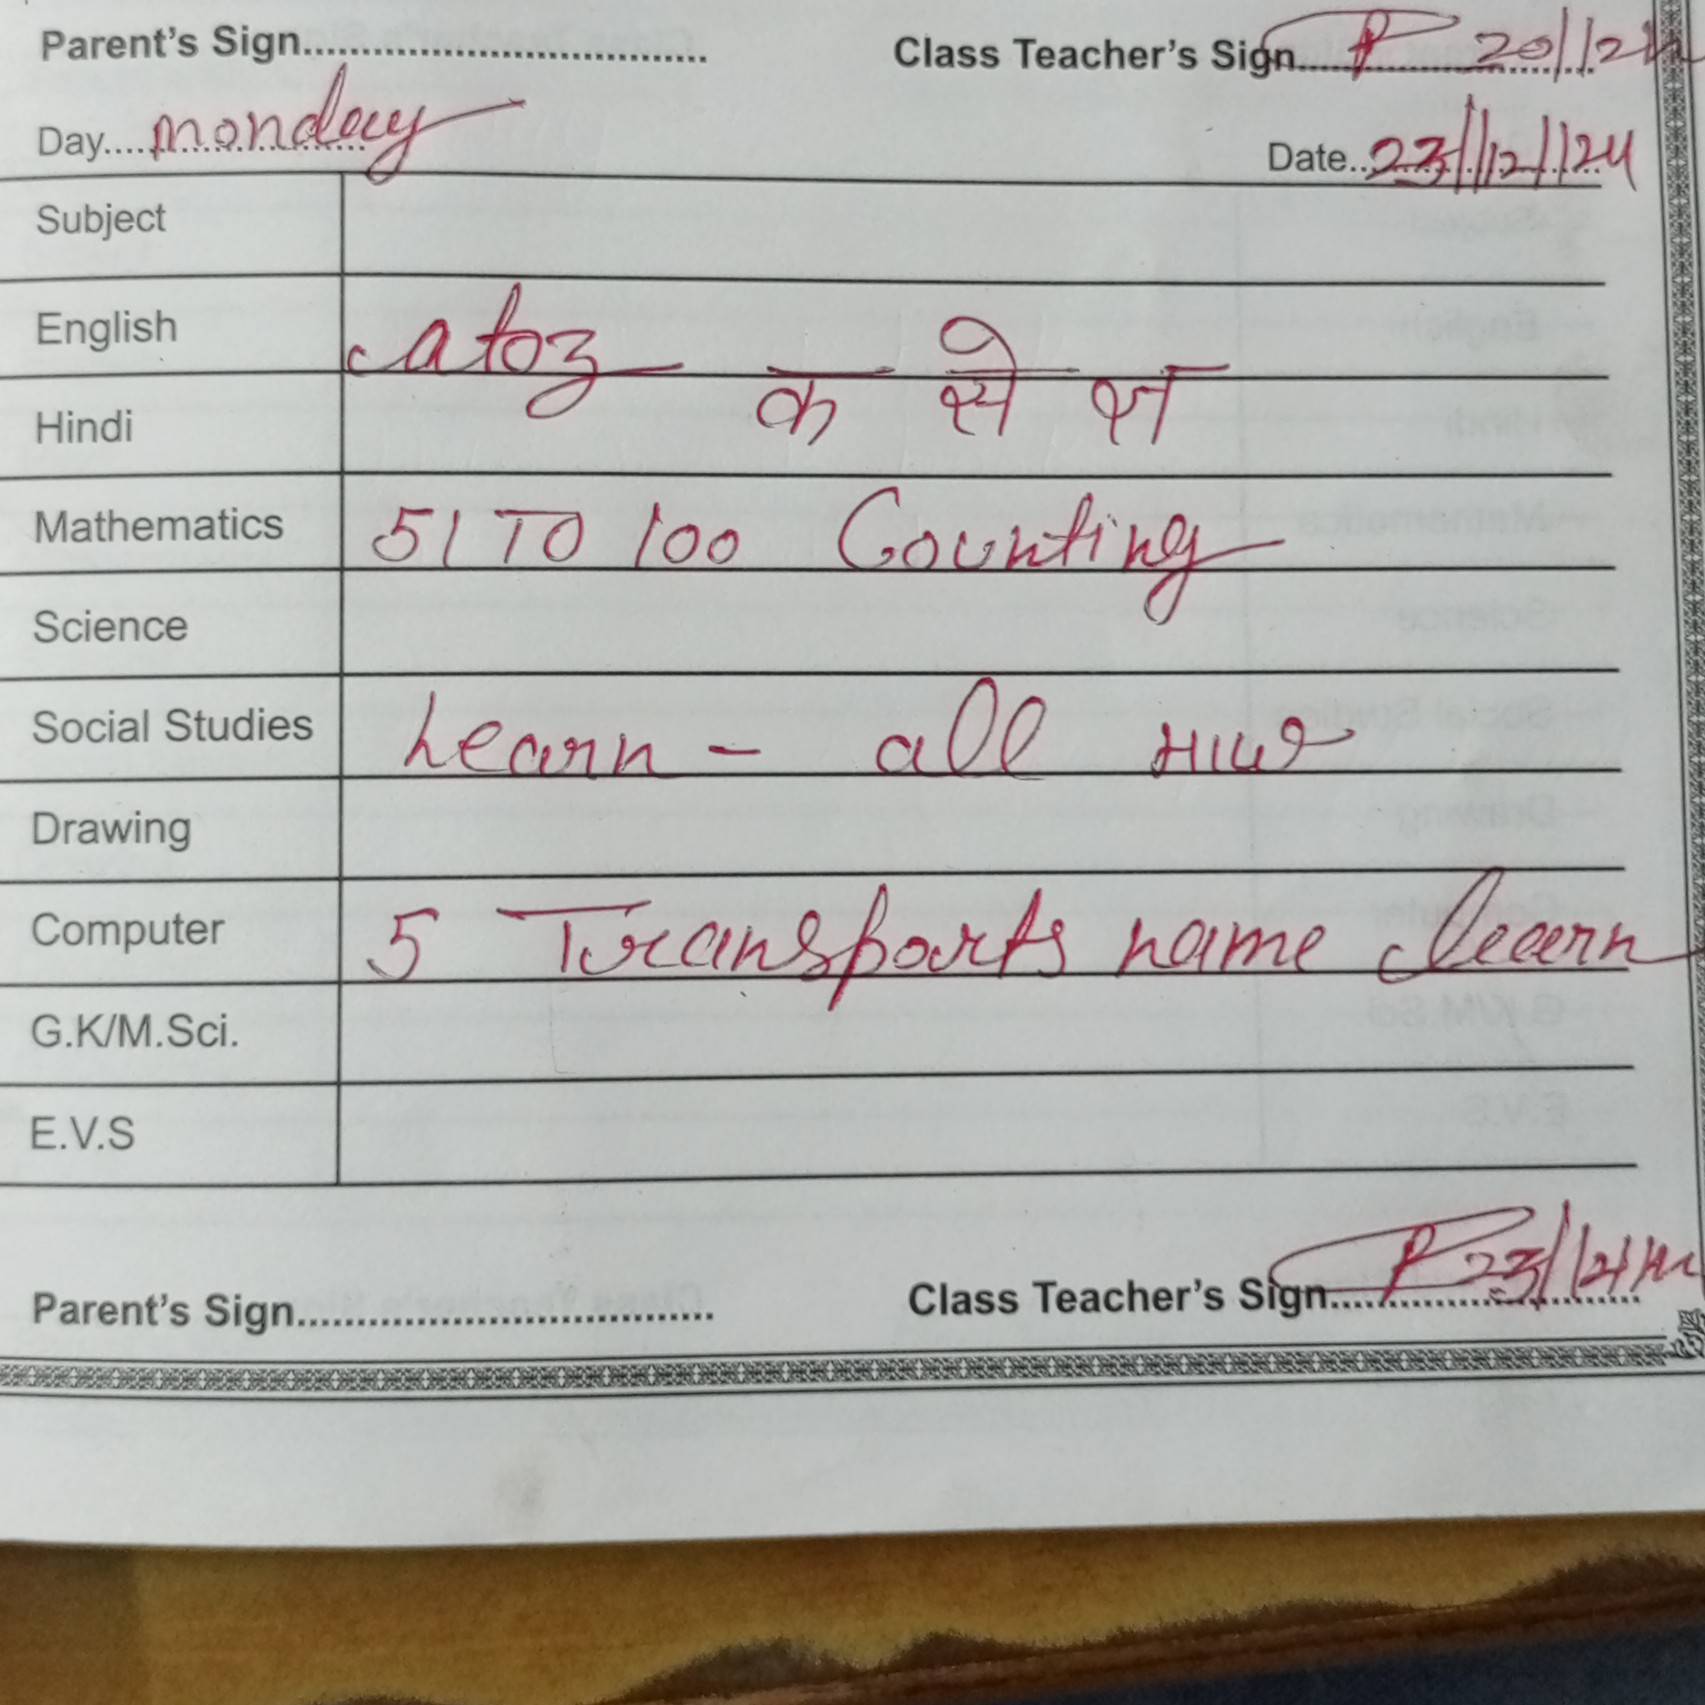 Parent's Sign.................................. Class Teacher's Sign............ 20/12/24
Day....monday Date..23/12/24
Subject
English a to z
Hindi क से ज्ञ
Mathematics 51 TO 100 Counting
Science
Social Studies Learn - all
Drawing
Computer 5 Transports name learn
G.K/M.Sci.
E.V.S
Parent's Sign.................................. Class Teacher's Sign............ 23/12/24